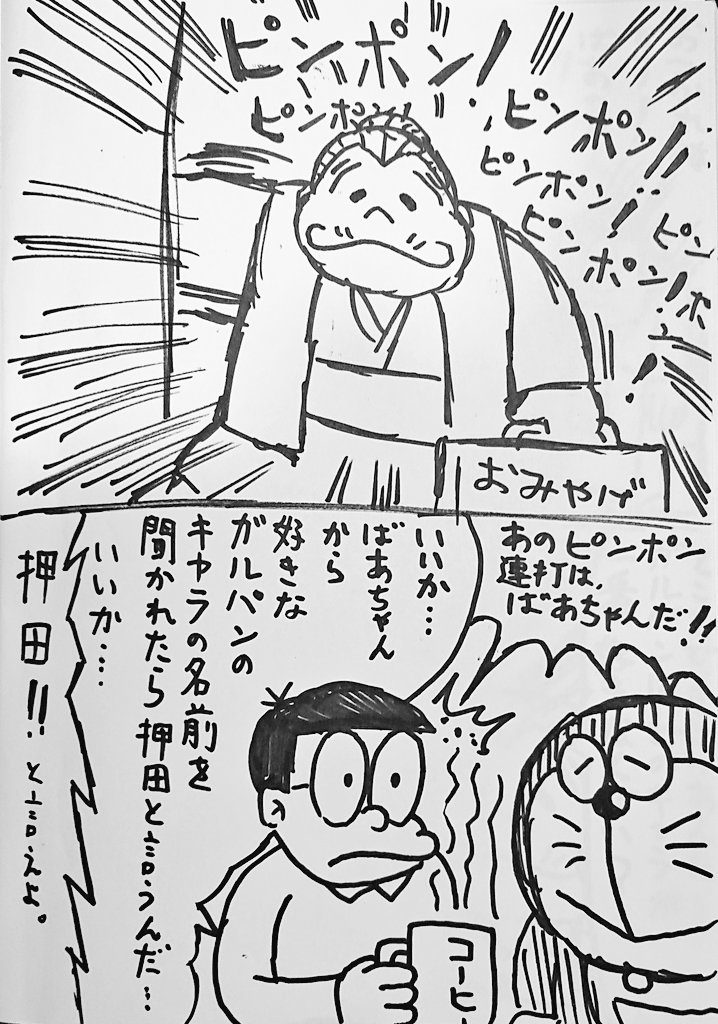 ピンポン!
ピンポン!
ピンポン!!
ピンポン!
ピンポン!
ピン
ポ
おみやげ
あのピンポン
連打は、
ばあちゃんだ!!
いいか…
ばあちゃん
から
好きな
ガルパンの
キャラの名前を
聞かれたら押田と言うんだ…
いいか‥‥
押田!!と言えよ。
コーヒー